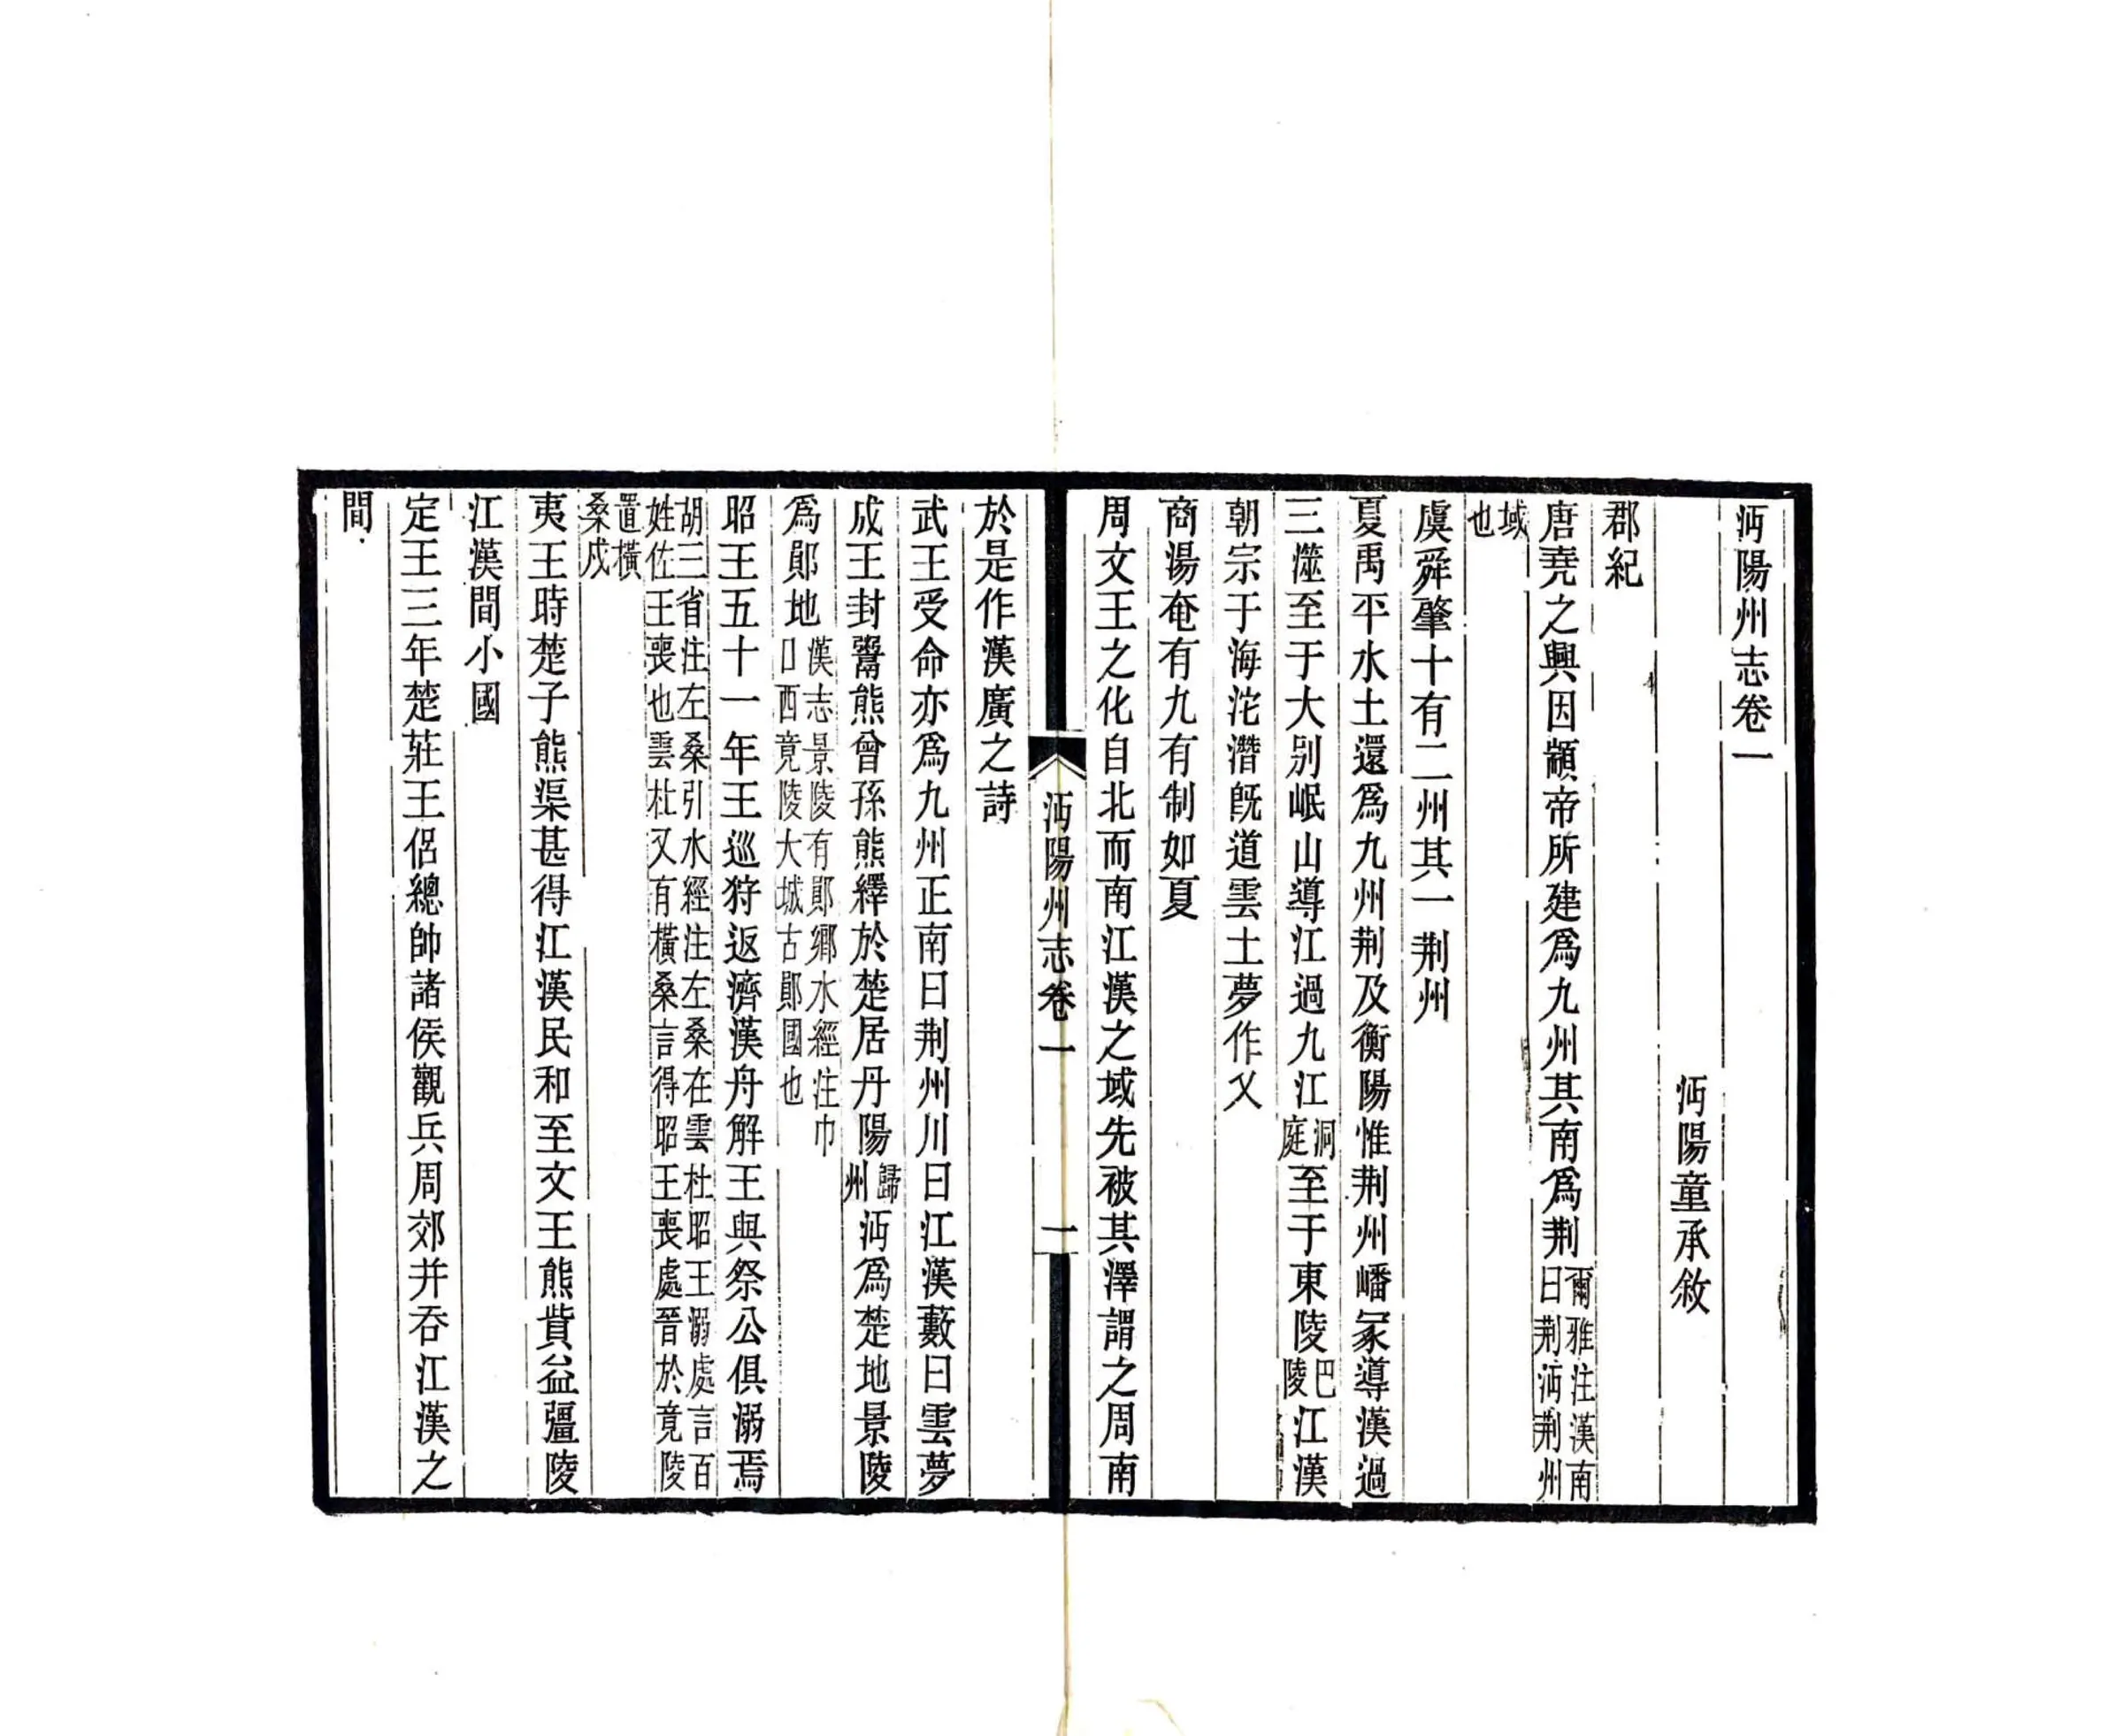 沔陽州志卷一
沔陽童承敘
郡紀
唐堯之興因顓帝所建爲九州其南爲荆爾雅注漢南曰荆沔荆州
域也
虞舜肇十有二州其一荆州
夏禹平水土還爲九州荆及衡陽惟荆州嶓冢導漢過
三澨至于大别岷山導江過九江洞庭至于東陵巴陵江漢
朝宗于海沱潛旣道雲土夢作乂
商湯奄有九有制如夏
周文王之化自北而南江漢之域先被其澤謂之周南
沔陽州志卷一 一
於是作漢廣之詩
武王受命亦爲九州正南曰荆州川曰江漢藪曰雲夢
成王封鬻熊曾孫熊繹於楚居丹陽歸州沔爲楚地景陵
爲鄖地漢志景陵有鄖鄉水經注巾口西竟陵大城古鄖國也
昭王五十一年王巡狩返濟漢舟解王與祭公俱溺焉
胡三省注左桑引水經注左桑在雲杜昭王溺處言百姓佐王喪也雲杜又有橫桑言得昭王喪處晉於竟陵
置橫桑戍
夷王時楚子熊渠甚得江漢民和至文王熊貲益彊陵
江漢間小國
定王三年楚莊王侶總帥諸侯觀兵周郊并吞江漢之
間